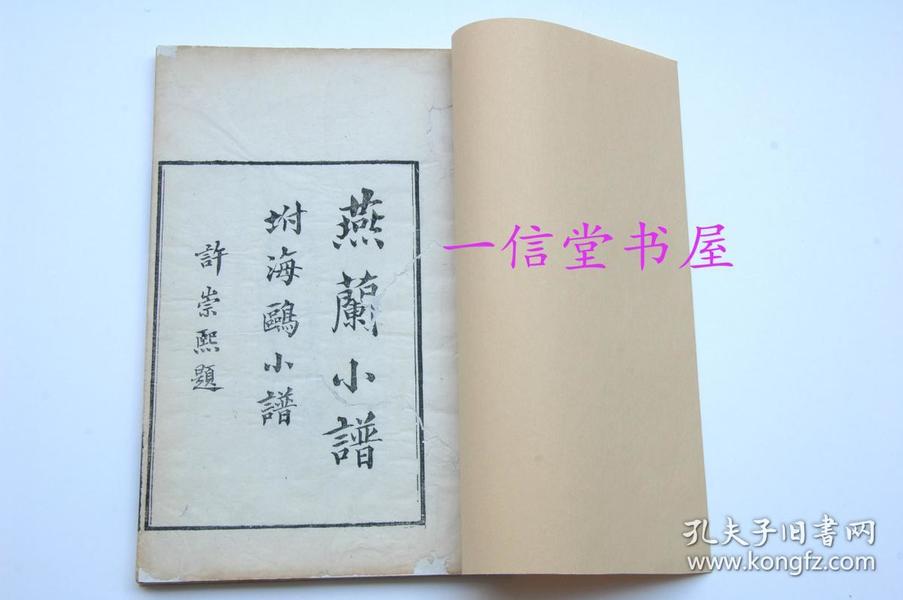 燕蘭小譜
坿海鷗小譜
許崇熙題
一信堂书屋
孔夫子旧书网
www.kongfz.com